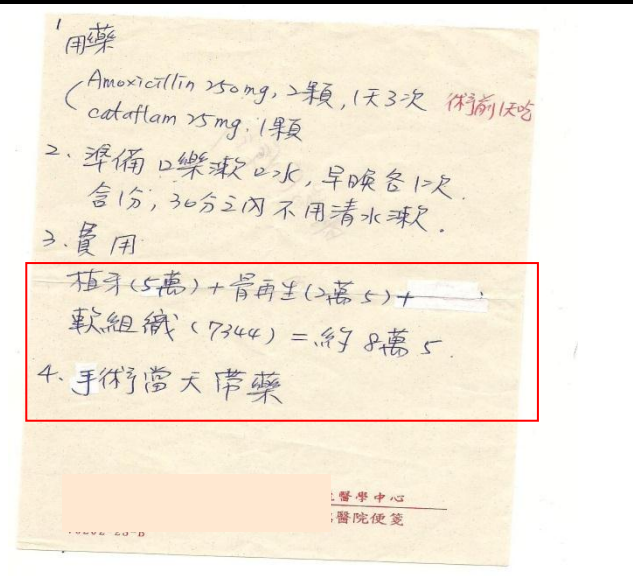 1
用藥
Amoxicillin 250mg, 2顆, 1天3次 術前1天吃
cataflam 25mg. 1顆
2. 準備口樂漱口水, 早晚各1次.
含1分, 30分之內不用清水漱.
3. 費用
植牙(5萬)+骨再生(2萬5)+
軟組織(7344)=約8萬5.
4. 手術當天帶藥
醫學中心
醫院便箋